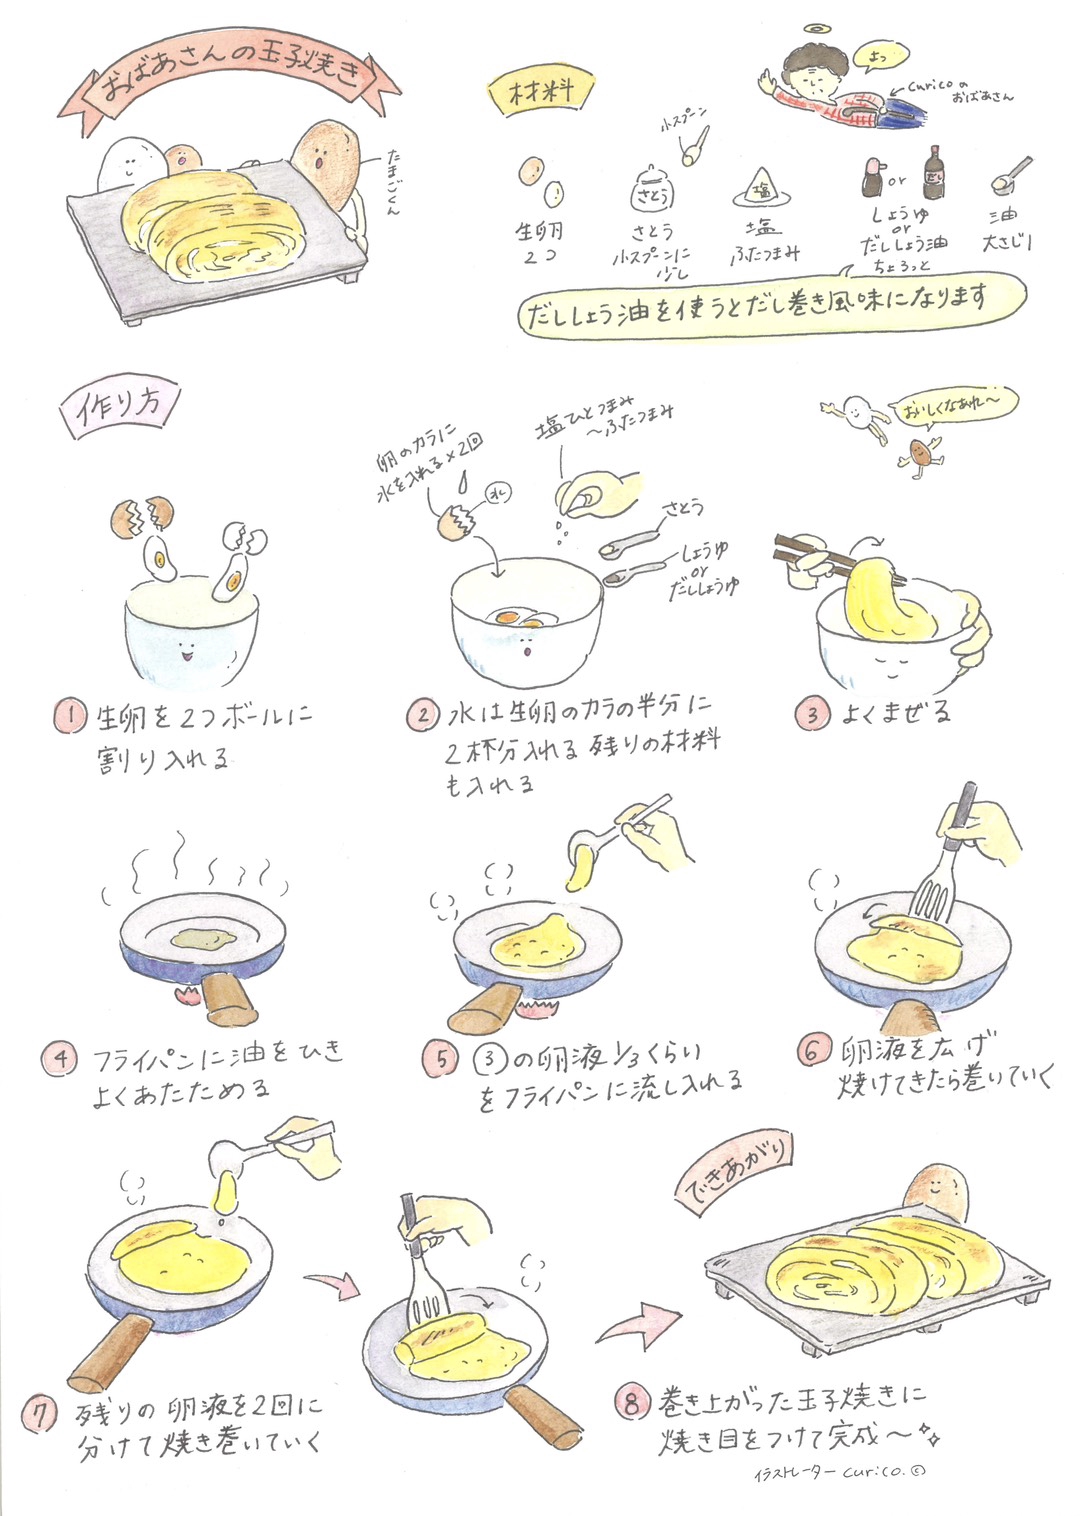 おばあさんの玉子焼き
たまごくん
材料
よっ
curicoの
おばあさん
小スプーン
さとう
塩
だし
or
生卵
2つ
さとう
小スプーンに
少し
塩
ふたつまみ
しょうゆ
or
だししょう油
ちょろっと
油
大さじ1
だししょう油を使うとだし巻き風味になります
作り方
おいしくなあれ〜
卵のカラに
水を入れる×2回
水
塩ひとつまみ
〜ふたつまみ
さとう
しょうゆ
or
だししょうゆ
① 生卵を2つボールに
割り入れる
② 水は生卵のカラの半分に
2杯分入れる 残りの材料
も入れる
③ よくまぜる
④ フライパンに油をひき
よくあたためる
⑤ ③の卵液1/3くらい
をフライパンに流し入れる
⑥ 卵液を広げ
焼けてきたら巻いていく
⑦ 残りの卵液を2回に
分けて焼き巻いていく
できあがり
⑧ 巻き上がった玉子焼きに
焼き目をつけて完成〜
イラストレーター curico.©